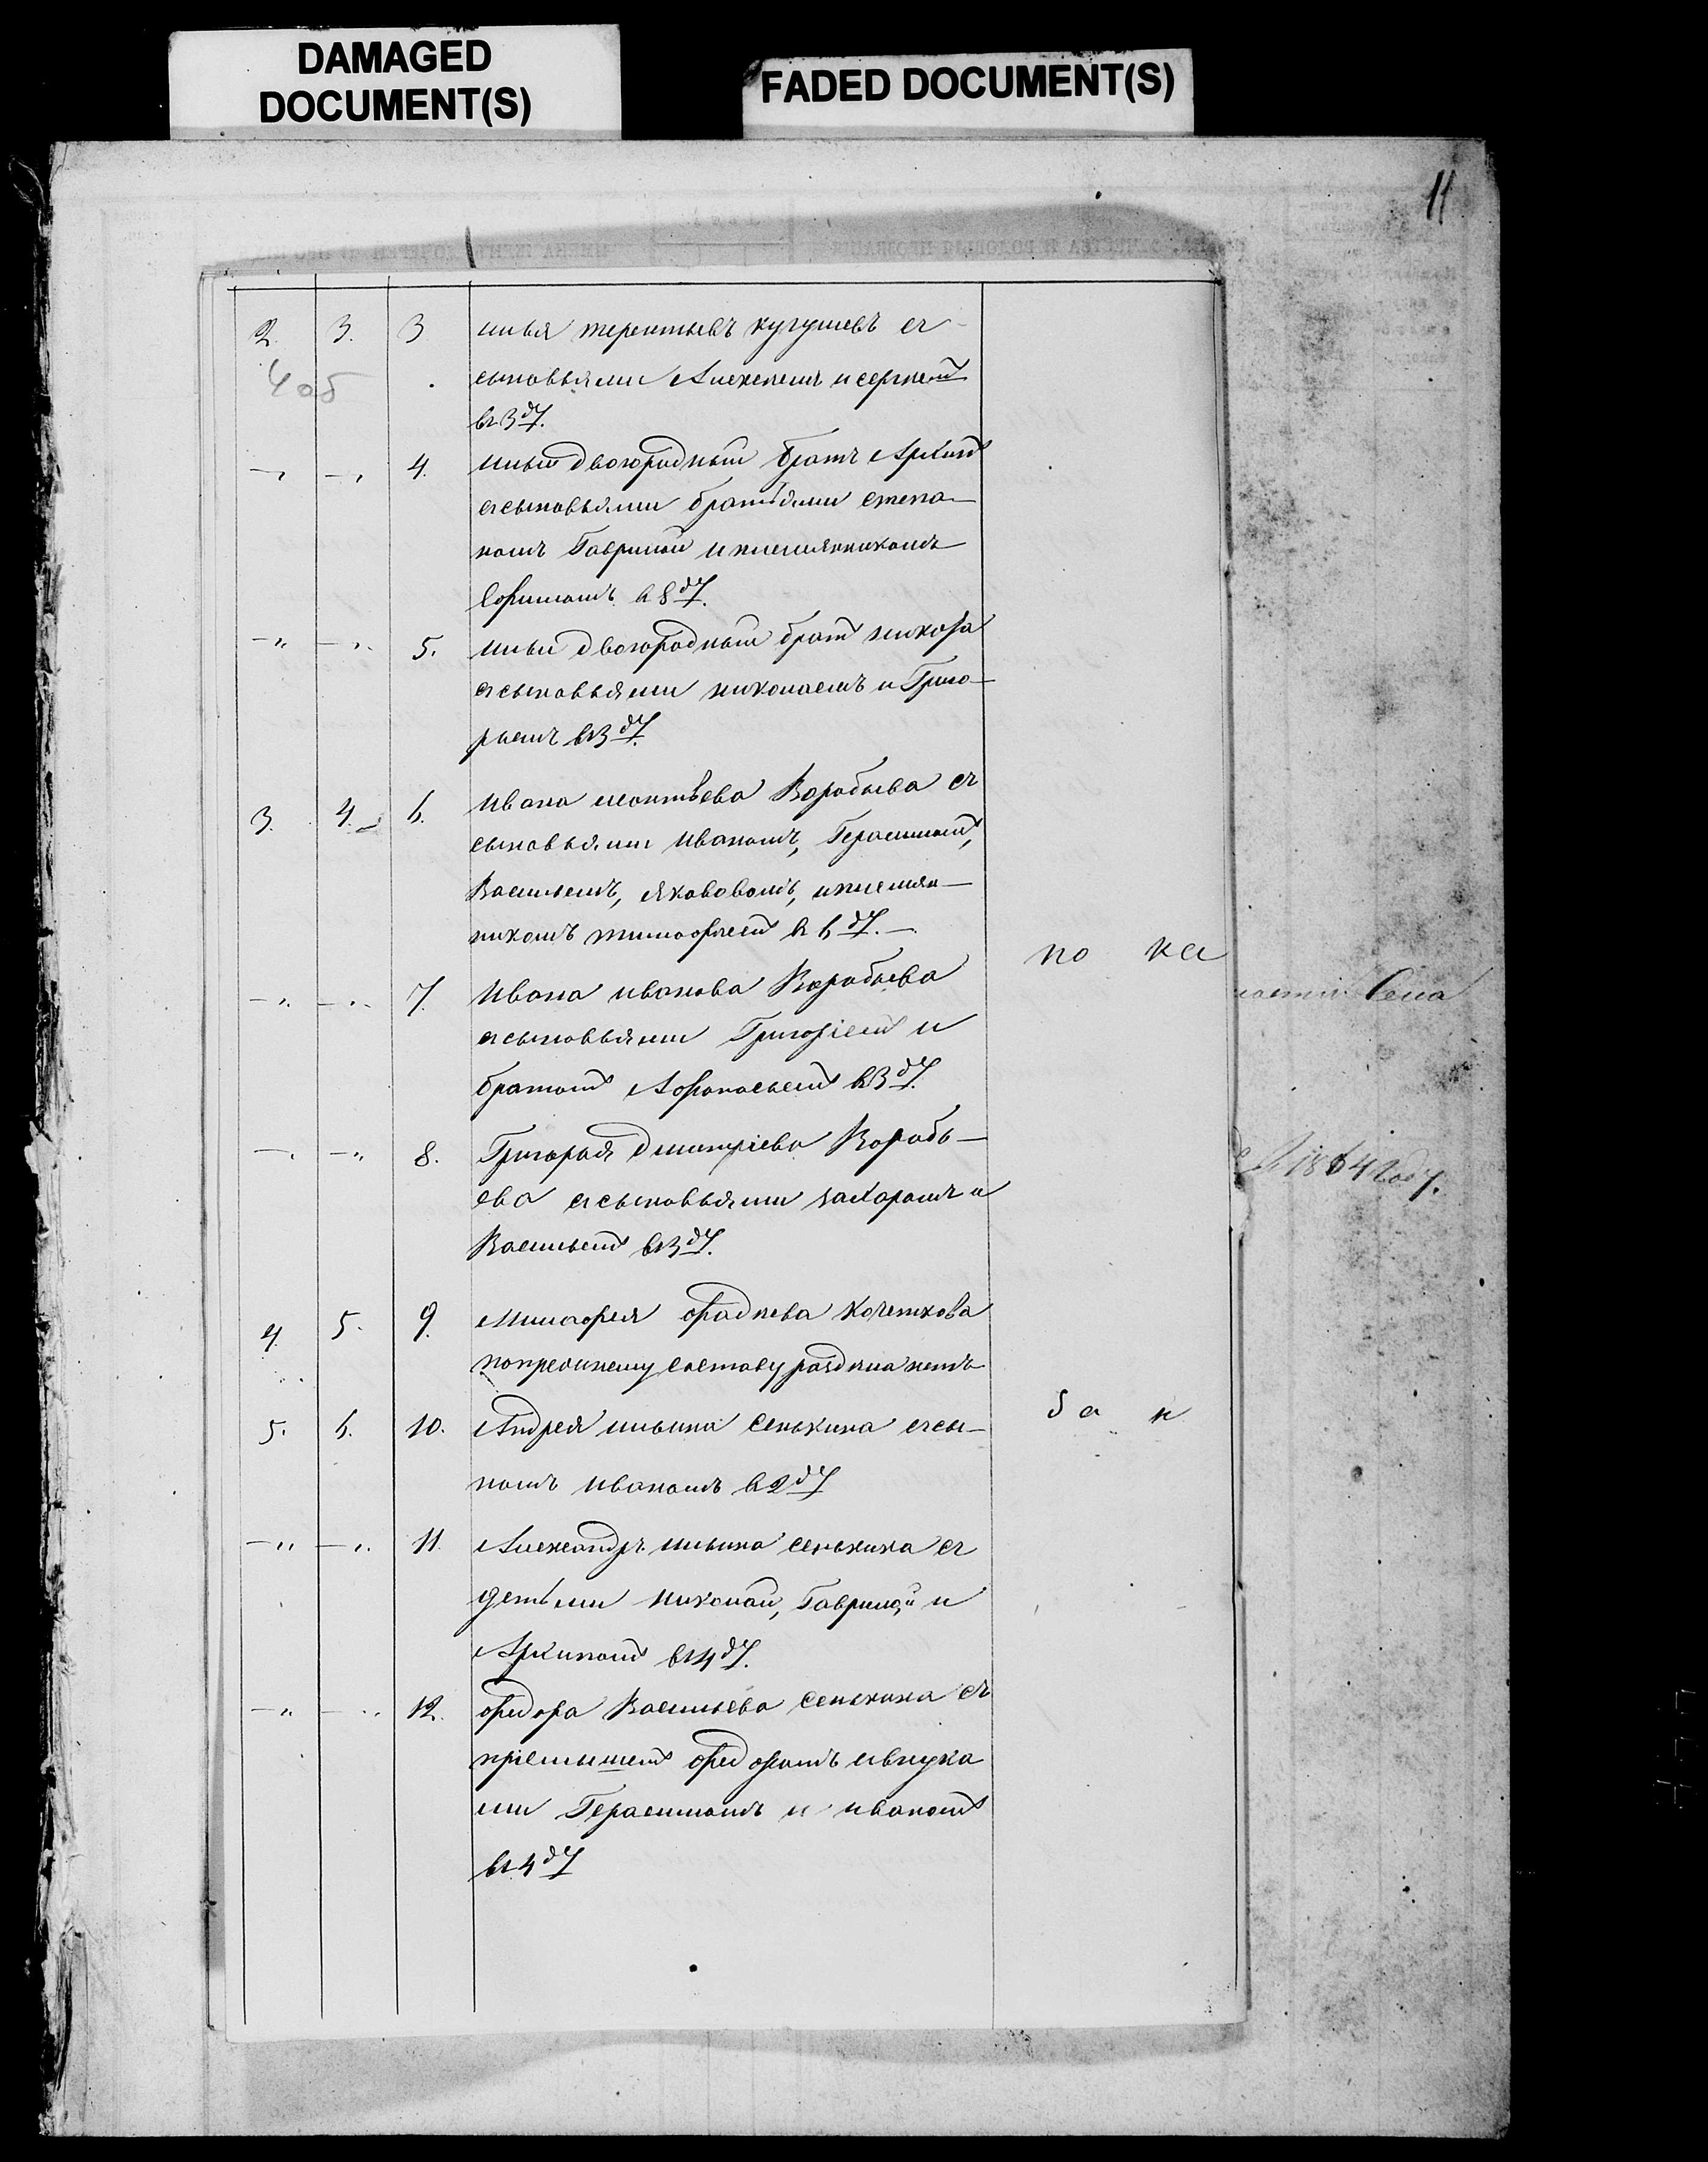 DAMAGED
DOCUMENT(S)
FADED DOCUMENT(S)
11
2. 3. 3 илья терентьевъ кугушевъ съ
4 об сыновьями Алексеемъ и сергеем
въ 3 ду.
—„ —„ 4. ильи двоюродный братъ Архип
съ сыновьями братьями степа—
номъ Гаврилой и племянникомъ
Ефимомъ въ 8 ду.
—„ —„ 5. ильи двоюродный брат никофа
съ сыновьями николаемъ и Григо—
рьемъ въ 3 ду.
3. 4. 6. Ивана леонтьева Воробьева съ
сыновьями Иваномъ, Герасимом,
Васильемъ, Яковомъ, и племян—
никомъ тимофеем въ 6 ду.—
по ка
—„ —„ 7. Ивана иванова Воробьева
Села
съ сыновьями Григорiем и
братом Афонасьем въ 3 ду.
—„ —„ 8. Григорья дмитрiева Воробь—
1864 году.
ева съ сыновьями захаромъ и
Васильем въ 3 ду.
4. 5. 9. Тимофея фадеева Кочеткова
попрежнему составу раздела нетъ
5. 6. 10. Андрея ильина Сенькина съ сы—
номъ Иваномъ въ 2 ду
—„ —„ 11. Александръ ильина сенькина съ
детьми николай, Гаврилой и
Архипом въ 4 ду.
—„ —„ 12. федора Васильева сенькина съ
прiемышем федоромъ и внука
ми Герасимомъ и иваном
въ 4 ду